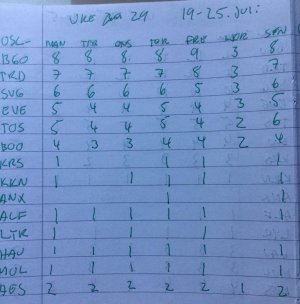 UKE 29. 19-25. Jul:
OSL MAN TIR ONS TOR FRE LØR SØN
BGO 8 8 8 8 9 3 8
TRD 7 7 7 7 8 3 7
SVG 6 6 6 6 5 3 6
EVE 5 4 4 5 4 3 5
TOS 5 4 4 5 4 2 6
BOO 4 3 3 4 4 2 4
KRS 1 1 1 1
KKN 1 1 1 1
ANX 1 1
ALF 1 1 1 1 1 1
LYR 1 1 1
HAU 1 1 1 1 1 1
MOL 1 1 1 1 1 1
AES 2 2 2 2 2 1 2